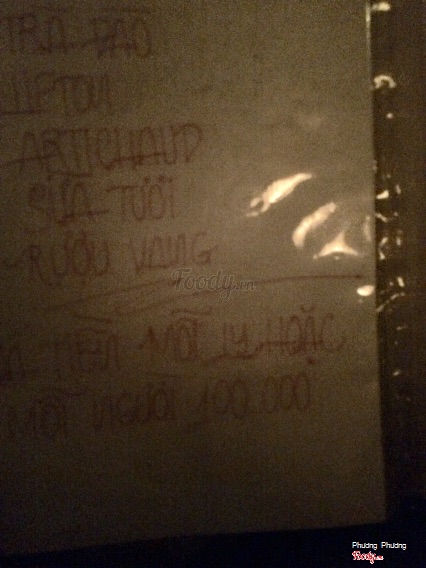 TRÀ ĐÀO
LIPTON
ARTICHAUD
SỮA TƯƠI
RƯỢU VANG
Foody.vn
TIỀN MỖI LY HOẶC
MỖI NGƯỜI 100.000
Phương Phương
Foody.vn